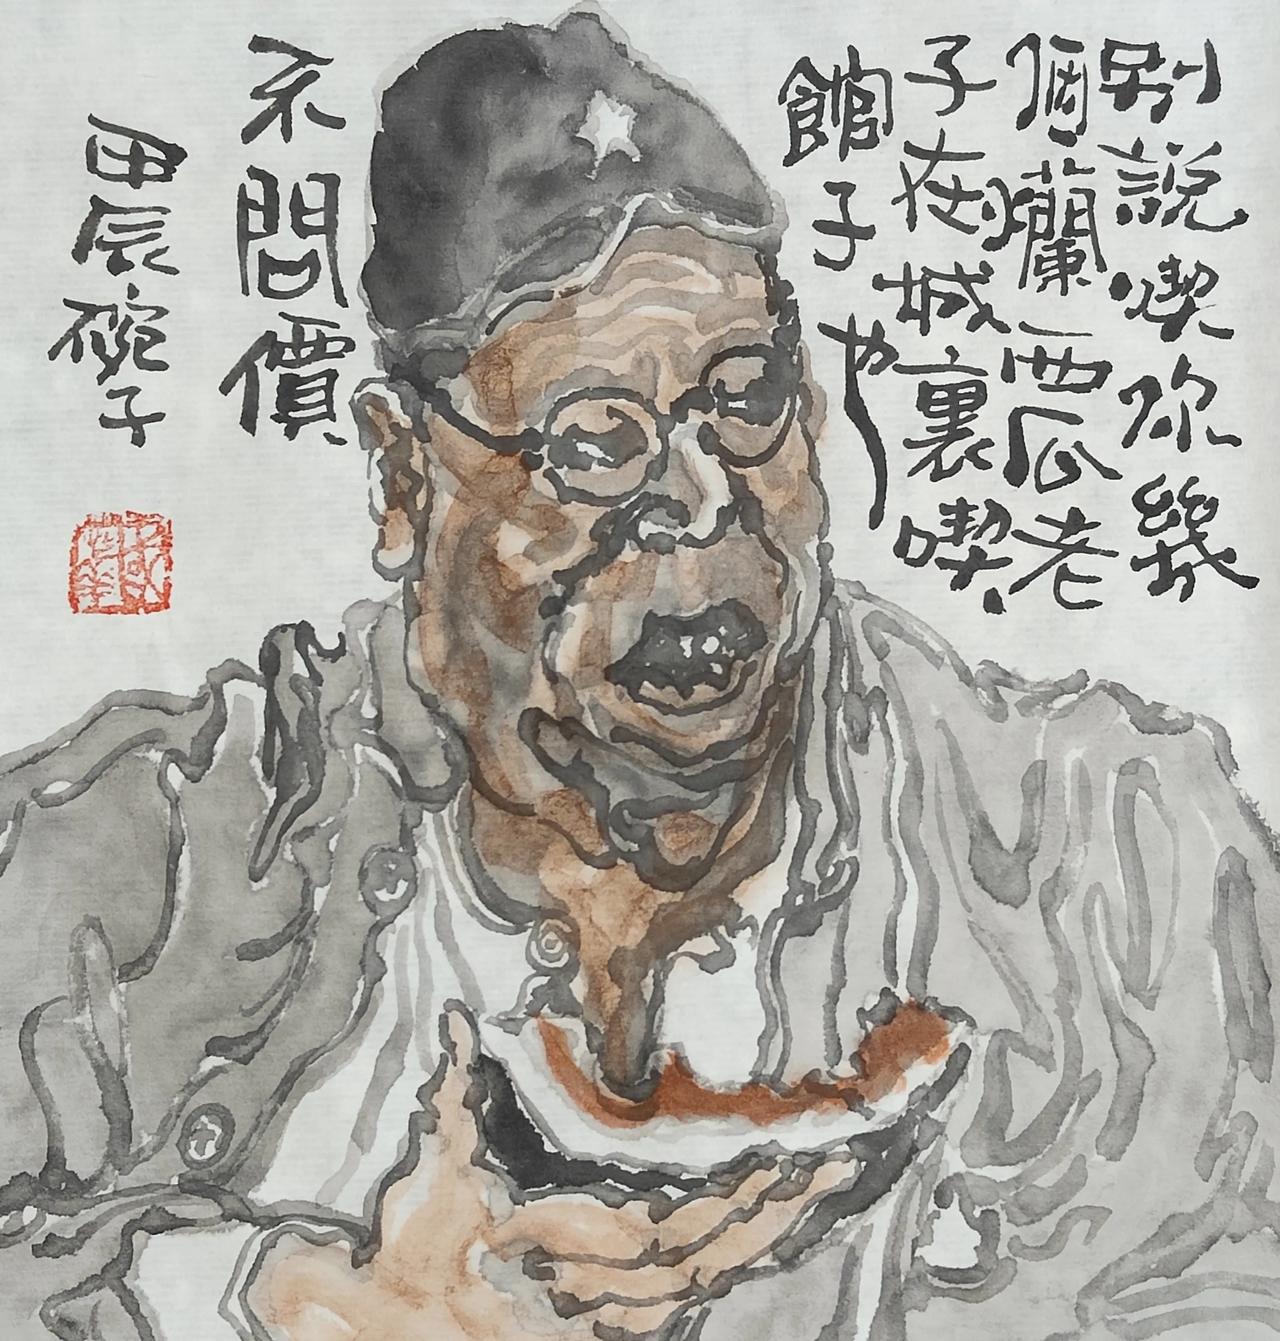 別說喫你幾
個爛西瓜老
子在城裏喫
館子也
不問價
甲辰碗子